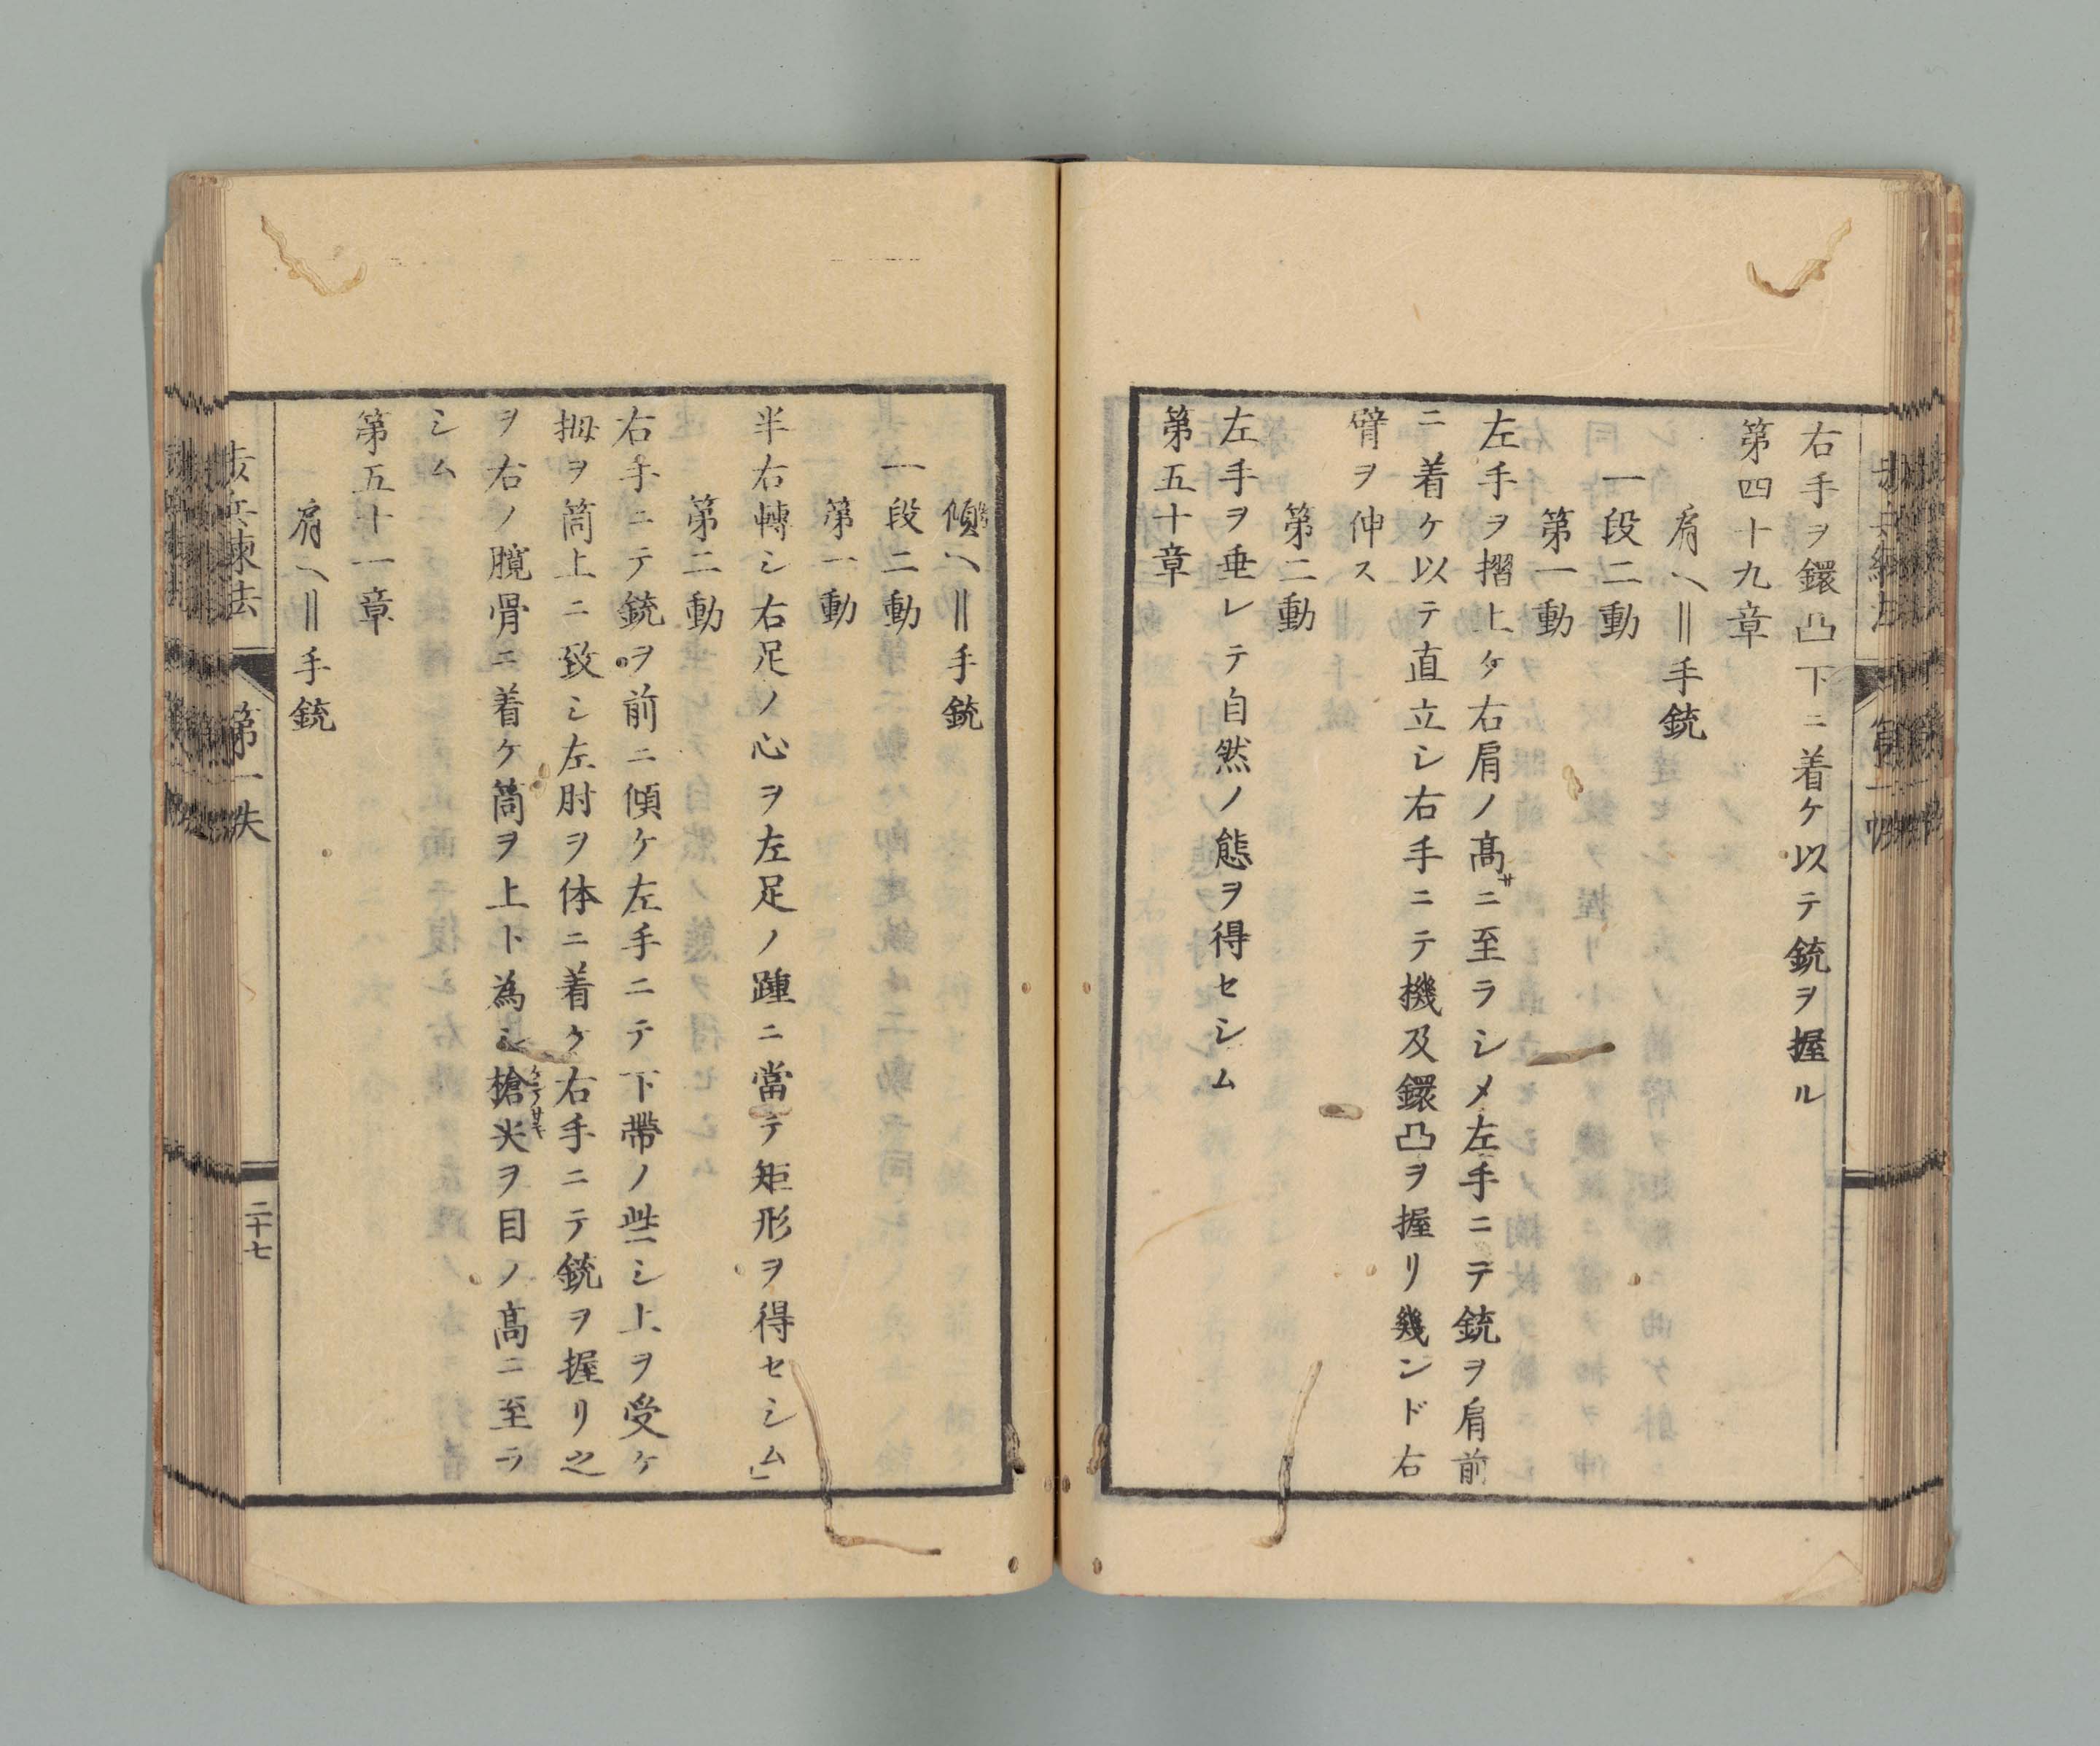 右手ヲ鐶凸下ニ着ケ以テ銃ヲ握ル
第四十九章
肩ヘ‖手銃
一段二動
第一動
左手ヲ摺上ケ右肩ノ髙サニ至ラシメ左手ニテ銃ヲ肩前
ニ着ケ以テ直立シ右手ニテ機及鐶凸ヲ握リ幾ンド右
臂ヲ伸ス
第二動
左手ヲ垂レテ自然ノ態ヲ得セシム
第五十章
傾ヘ‖手銃
一段二動
第一動
半右轉シ右足ノ心ヲ左足ノ踵ニ當テ矩形ヲ得セシム」
第二動
右手ニテ銃ヲ前ニ傾ケ左手ニテ下帶ノ些シ上ヲ受ケ
拇ヲ筒上ニ致シ左肘ヲ体ニ着ケ右手ニテ銃ヲ握リ之
ヲ右ノ臗骨ニ着ケ筒ヲ上ト為シ槍尖ヲ目ノ髙ニ至ラ
シム
第五十一章
肩ヘ‖手銃
歩兵練法 第一帙
二十七